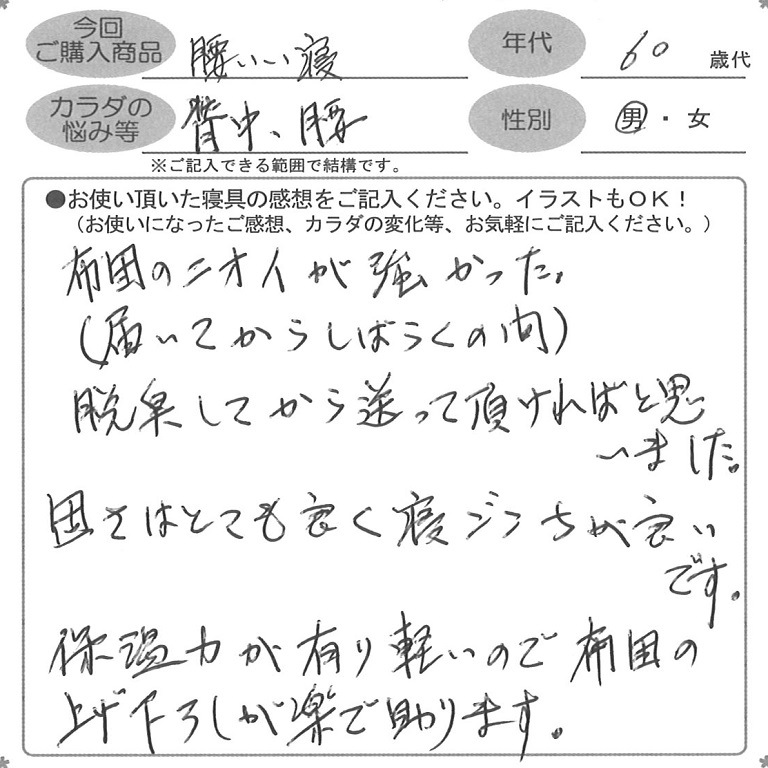 今回
ご購入商品
腰いい寝
年代
60
歳代
カラダの
悩み等
背中、腰
性別
男・女
※ご記入できる範囲で結構です。
●お使い頂いた寝具の感想をご記入ください。イラストもOK！
（お使いになったご感想、カラダの変化等、お気軽にご記入ください。）
布団のニオイが強かった。
（届いてからしばらくの間）
脱臭してから送って頂ければと思
いました。
固さはとても良く寝ごこちが良い
です。
保温力が有り軽いので布団の
上げ下ろしが楽で助ります。